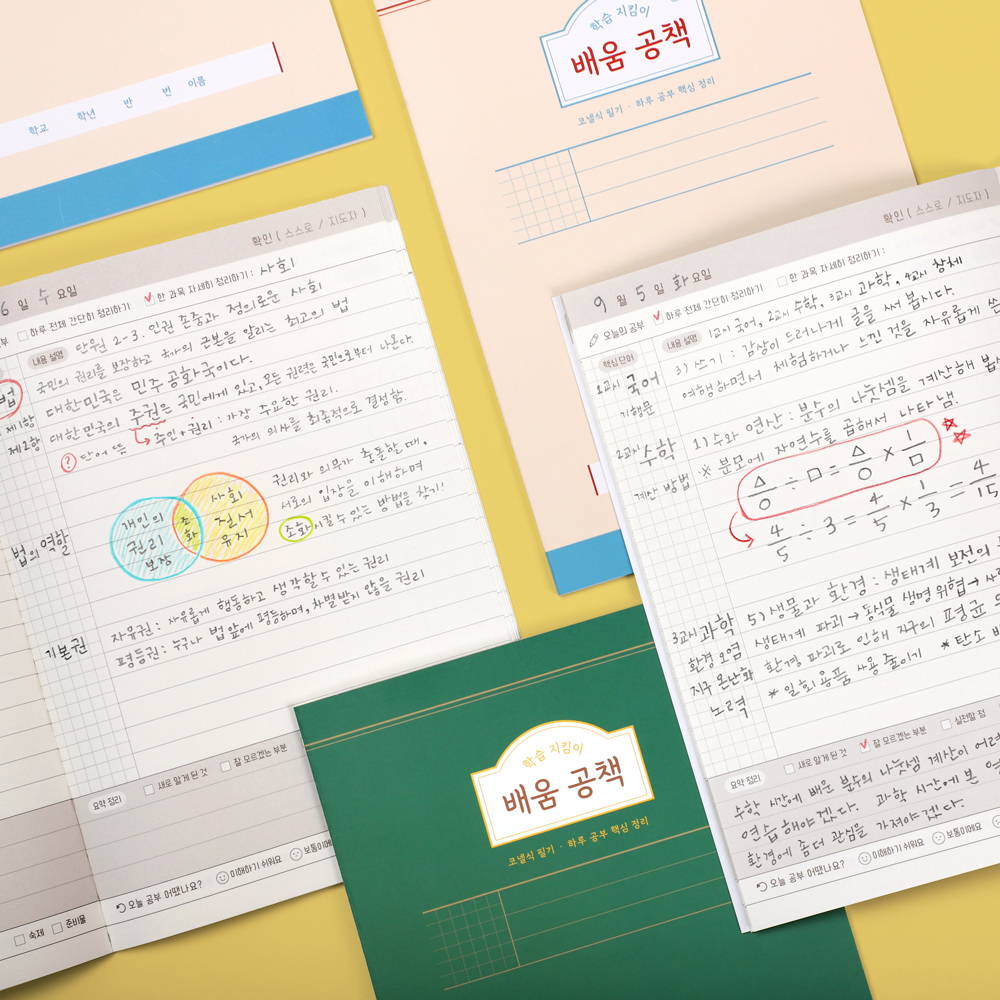 학교 학년 반 번 이름
학습 지킴이
배움 공책
코넬식 필기 · 하루 공부 핵심 정리
확인 ( 스스로 / 지도자 )
6 일 수 요일
하루 전체 간단히 정리하기 ✓ 한 과목 자세히 정리하기 : 사회
내용 설명 단원 2-3. 인권 존중과 정의로운 사회
국민의 권리를 보장하고 국가의 근본을 알리는 최고의 법
제1항 대한민국은 민주 공화국이다.
제2항 대한민국의 주권은 국민에게 있고, 모든 권력은 국민으로부터 나온다.
? 단어 뜻 주인+권리 : 가장 주요한 권리.
국가의 의사를 최종적으로 결정함.
법의 역할
개인의 권리 보장
조화
사회 질서 유지
권리와 의무가 충돌할 때,
서로의 입장을 이해하며
조화시킬 수 있는 방법을 찾기!
기본권
자유권 : 자유롭게 행동하고 생각할 수 있는 권리
평등권 : 누구나 법 앞에 평등하며, 차별받지 않을 권리
요약 정리 새로 알게 된 것 잘 모르겠는 부분
오늘 공부 어땠나요? 이해하기 쉬워요 보통이에요
숙제 준비물
확인 ( 스스로 / 지도자 )
9 월 5 일 화 요일
오늘의 공부 ✓ 하루 전체 간단히 정리하기 한 과목 자세히 정리하기 :
핵심 단어 내용 설명 1교시 국어, 2교시 수학, 3교시 과학, 4교시 창체
1교시 국어 3) 쓰기 : 감상이 드러나게 글을 써 봅시다.
기행문 여행하면서 체험하거나 느낀 것을 자유롭게
2교시 수학 1) 수와 연산 : 분수의 나눗셈을 계산해
계산 방법 ※ 분모에 자연수를 곱해서 나타냄.
△/○ ÷ □ = △/○ × 1/□
4/5 ÷ 3 = 4/5 × 1/3 = 4/15
3교시 과학 5) 생물과 환경 : 생태계 보전의
환경 오염 생태계 파괴 → 동식물 생명 위협 →
지구 온난화 환경 파괴로 인해 지구의 평균
노력 * 일회용품 사용 줄이기 * 탄소
요약 정리 새로 알게 된 것 ✓ 잘 모르겠는 부분 실천할 점
수학 시간에 배운 분수의 나눗셈 계산이
연습해야겠다. 과학 시간에 본
환경에 좀더 관심을 가져야겠다.
오늘 공부 어땠나요? 이해하기 쉬워요 보통이에요
학습 지킴이
배움 공책
코넬식 필기 · 하루 공부 핵심 정리